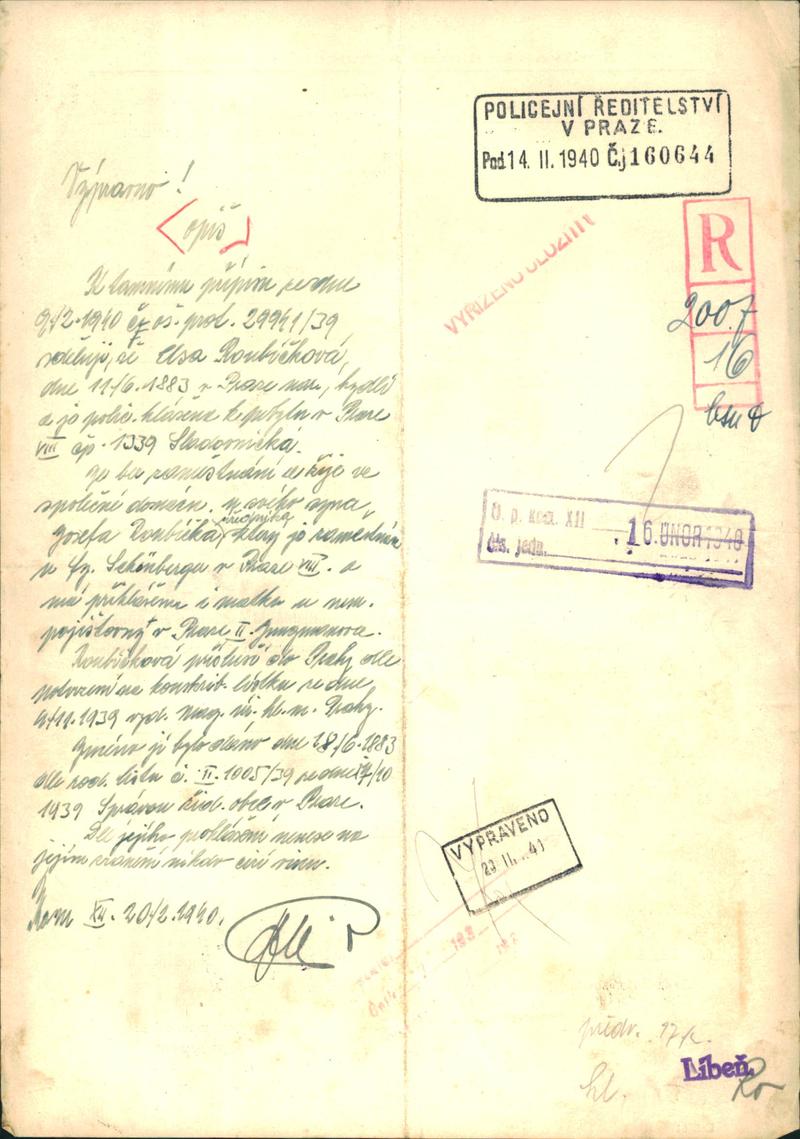 Výpravno!
opis
K tamnímu přípisu ze dne
9/2.1940 čj. oš. prot. 29941/39
sděluji, že Elsa Roubíčková,
dne 11/6.1883 v Praze nar., bydlí
a je polic. hlášena k pobytu v Praze
VIII čp. 1339 Sladovnická.
Je bez zaměstnání a žije ve
společné domácn. u svého syna
Josefa Roubíčka, úředníka, který je zaměstnán
u fy. Schönberga v Praze VIII. a
má přihlášenu i matku u nem.
pojišťovny v Praze II. Jungmanova.
Roubíčková přísluší do Prahy dle
potvrzení na konskrib. lístku ze dne
9/11.1939 vyd. mag. úř. hl. m. Prahy.
Jméno jí bylo dáno dne 18/6.1883
dle rod. listu č. II. 1005/39 ze dne 17/10
1939 Správou žid. obce v Praze.
Dle jejího prohlášení nenese na
jejím zranění nikdo cizí vinu.
Kom XII. 20/2.1940.
POLICEJNÍ ŘEDITELSTVÍ
V PRAZE.
Pod 14. II. 1940 Čj 160644
VYŘÍZENO ULOŽITI
R
200.7
16
O. p. kom. XII
16. ÚNOR 1940
čís. jedn.
VYPRAVENO
předv. 17/2.
Libeň.
hl.
Ro